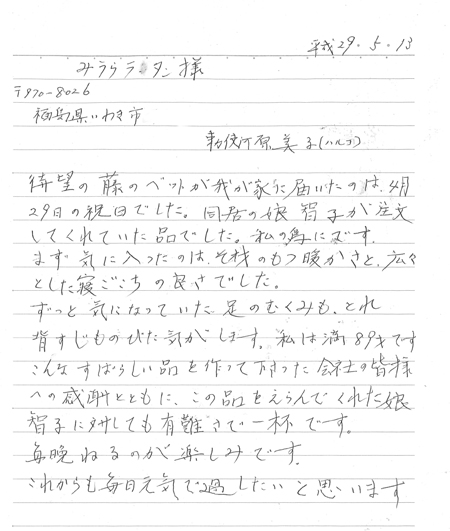 平成29.5.13
みうらラタン様
〒970-8026
福島県いわき市
勅使河原美子(ハルコ)
待望の藤のベットが我が家に届いたのは、4月
29日の祝日でした。同居の娘 智子が注文
してくれていた品でした。私の為にです。
まず気に入ったのは、その持のもつ暖かさと、広々
とした寝ごこちの良さでした。
ずっと気になっていた足のむくみも、とれ
背すじものびた気がします。私は満89才です
こんなすばらしい品を作って下さった会社の皆様
への感謝とともに、この品をえらんでくれた娘
智子に対しても有難さで一杯です。
毎晩ねるのが楽しみです。
これからも毎日元気で過したいと思います